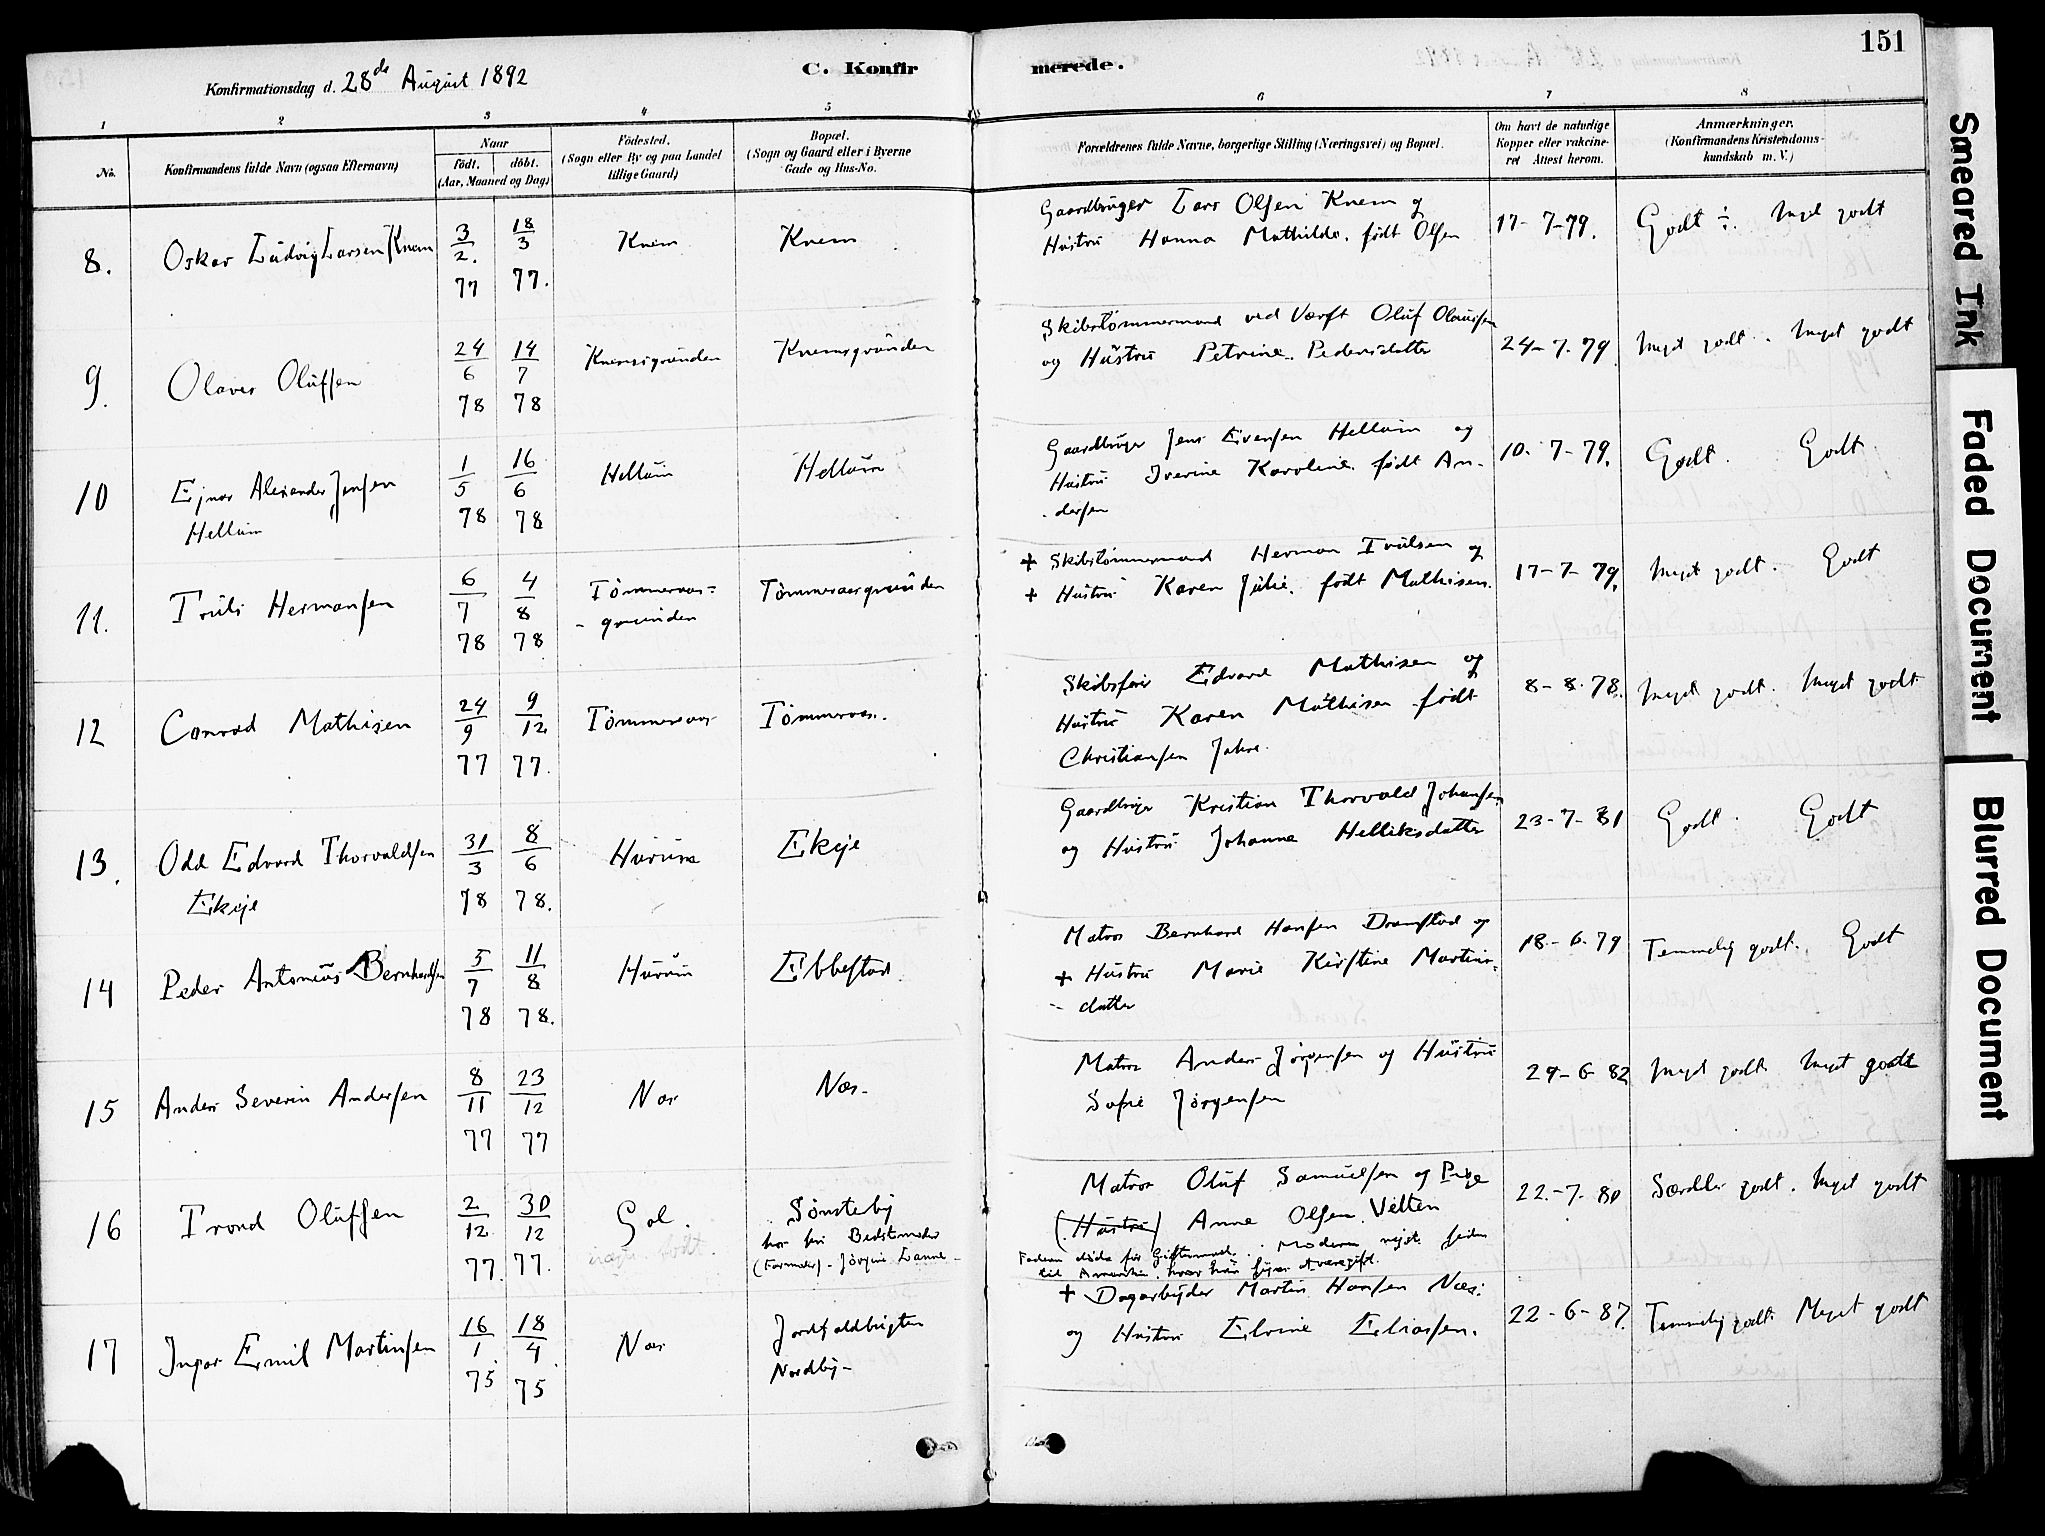 151
Konfirmationsdag d. 28de August 1892
C. Konfirmerede.
1 2 3 4 5 6 7 8
No.
Konfirmandens fulde Navn (ogsaa Efternavn)
Naar
födt. döbt.
(Aar, Maaned og Dag)
Födested.
(Sogn eller By og paa Landet
tillige Gaard)
Bopæl.
(Sogn og Gaard eller i Byerne
Gade og Hus-No.
Forældrenes fulde Navne, borgerlige Stilling (Næringsvei) og Bopæl.
Om havt de naturlige
Kopper eller vakcine-
ret Attest herom.
Anmærkninger.
(Konfirmandens Kristendoms-
kundskab m. V.)
8. Oskar Ludvig Larsen Knem 3/2. 77 18/3 77. Knem Knem
Gaardbruger Lars Olsen Knem og
Hustru Hanna Mathilde, født Olsen
17-7-79. Godt ÷. Meget godt
9. Olaves Olufsen 24/6 78 14/7 78 Knemsgrunden Knemsgrunden
Skibstømmermand ved Værft Oluf Olaussen
og Hustru Petrine Pedersdatter
24-7-79 Meget godt. Meget godt
10 Ejnar Alexander Jensen
Hellum
1/5 78 16/6 78 Hellum Hellum
Gaardbruger Jens Evensen Hellum og
Hustru Iverine Karoline, født An-
dersen
10-7-79. Godt. Godt
11. Truls Hermansen 6/7 78 4/8 78 Tømmeraas-
-grunden
Tømmeraasgrunden
+ Skibstømmermand Herman Trulsen og
+ Hustru Karen Julie, født Mathisen.
17-7-79. Meget godt. Godt
12 Conrad Mathisen 24/9 77 9/12 77. Tømmeraas Tømmeraas.
Skibsfører Edvard Mathisen og
Hustru Karen Mathisen født
Christiansen Jahre.
8-8-78. Meget godt. Meget godt
13. Odd Edvard Thorvaldsen
Ekeje
31/3 78 8/6 78. Hurum Ekeje
Gaardbruger Kristian Thorvald Johansen
og Hustru Johanne Helliksdatter
23-7-81 Godt. Godt
14 Peder Antonius Bernhardsen 5/7 78 11/8 78. Hurum Ebbestad.
Matros Bernhard Hansen Dramstad og
+ Hustru Marie Kirstine Martins-
- datter
18-6-79 Temmelig godt. Godt
15 Anders Severin Andersen 8/11 77 23/12 77 Næs Næs.
Matros Anders Jörgensen og Hustru
Sofie Jörgensen
29-6-82 Meget godt. Meget godt
16 Trond Olufsen 2/12 77. 30/12 77. Gol. Sönsteby
hos sin Bedstemoder
(Farmoder)
Matros Oluf Samuelsen og Pige
(Hustru) Anne Olsen Velten
Faderen døde før Giftermaal. Moderen rejst siden
til Amerika, hvor hun siges at være gift.
22-7-80 Særdeles godt. Meget godt
17 Ingar Emil Martinsen 16/1 75 18/4 75 Næs
Nordby-
+ Dagarbejder Martin Hansen Næs.
og Hustru Elvine Eliassen.
22-6-87. Temmelig godt. Meget godt
Smeared Ink
Faded Document
Blurred Document